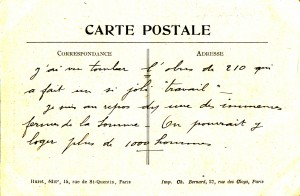 CARTE POSTALE
CORRESPONDANCE
ADRESSE
j'ai vu tomber l'obus de 210 qui
a fait un si joli "travail" –
je suis au repos ds une des immenses
fermes de la Somme – On pourrait y
loger plus de 1000 hommes
Huret, édit<sup>r</sup>, 15, rue de St-Quentin, Paris
Imp. Ch. Bernard, 27, rue des Cloÿs, Paris